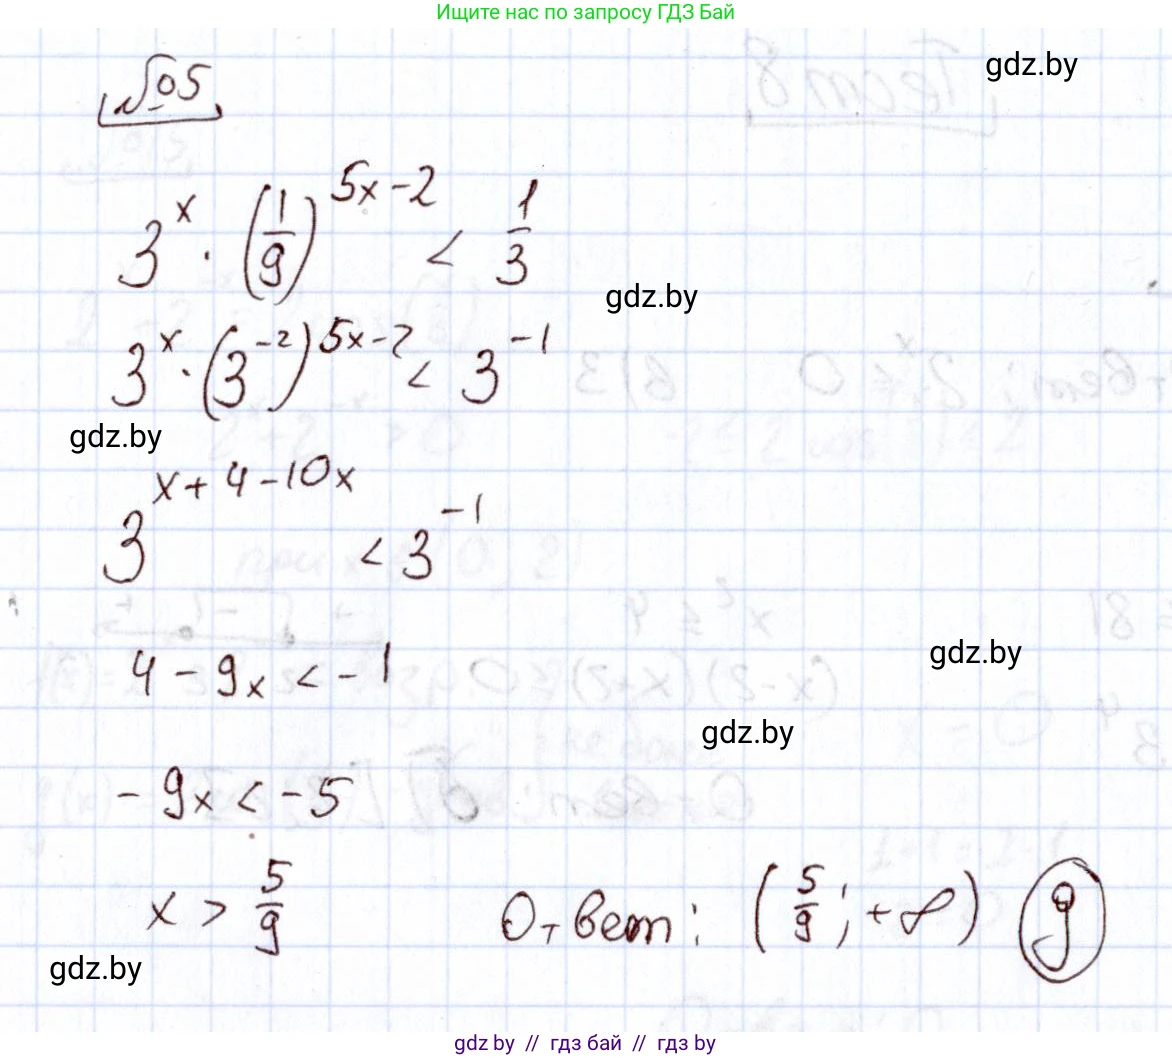 Ищите нас по запросу ГДЗ Бай
gdz.by
№05
3^x · (1/9)^(5x-2) < 1/3
gdz.by
3^x · (3^-2)^(5x-2) < 3^-1
gdz.by
3^(x+4-10x) < 3^-1
4 - 9x < -1
gdz.by
gdz.by
-9x < -5
x > 5/9 Ответ: (5/9; +∞) g
gdz.by
gdz.by // гдз бай // гдз by